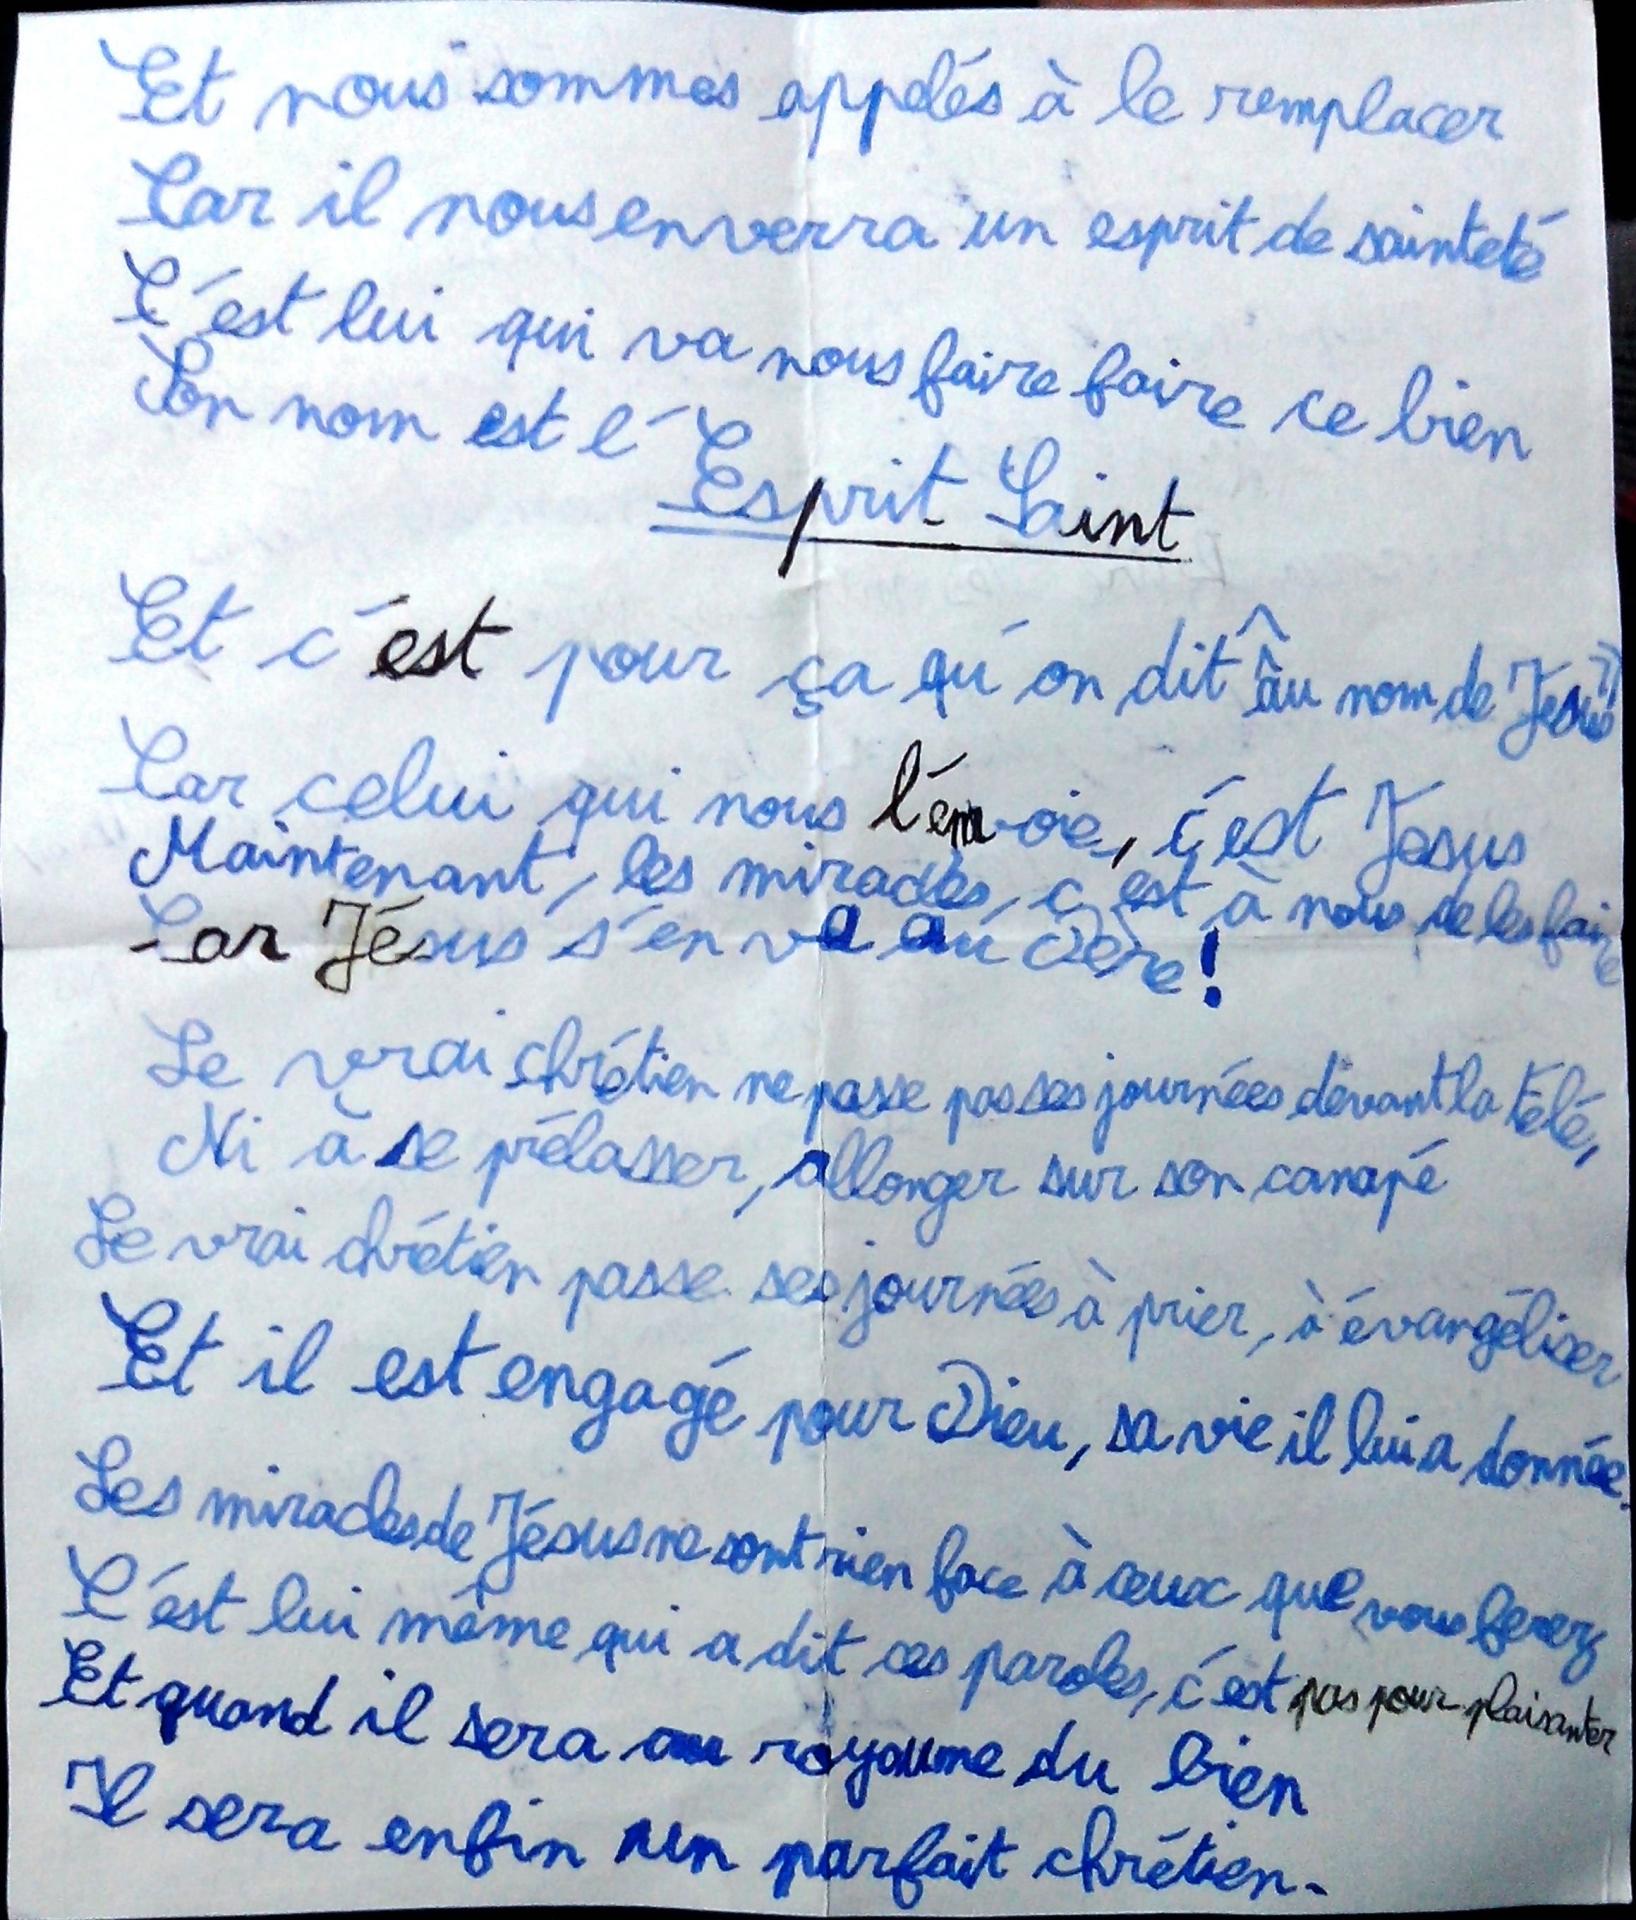 Et nous sommes appelés à le remplacer
Car il nous enverra un esprit de sainteté
C'est lui qui va nous faire faire ce bien
Son nom est l'
Esprit Saint
Et c'est pour ça qu'on dit "au nom de Jesus"
Car celui qui nous l'envoie, c'est Jesus
Maintenant, les miracles, c'est à nous de les faire
Car Jésus s'en va au Père!
Le vrai chrétien ne passe pas ses journées devant la télé,
Ni à se prélasser, allonger sur son canapé
Le vrai chrétien passe ses journées à prier, à évangéliser
Et il est engagé pour Dieu, sa vie il lui a donnée.
Les miracles de Jésus ne sont rien face à ceux que vous ferez
C'est lui même qui a dit ces paroles, c'est pas pour plaisanter
Et quand il sera au royaume du bien
Il sera enfin un parfait chrétien.